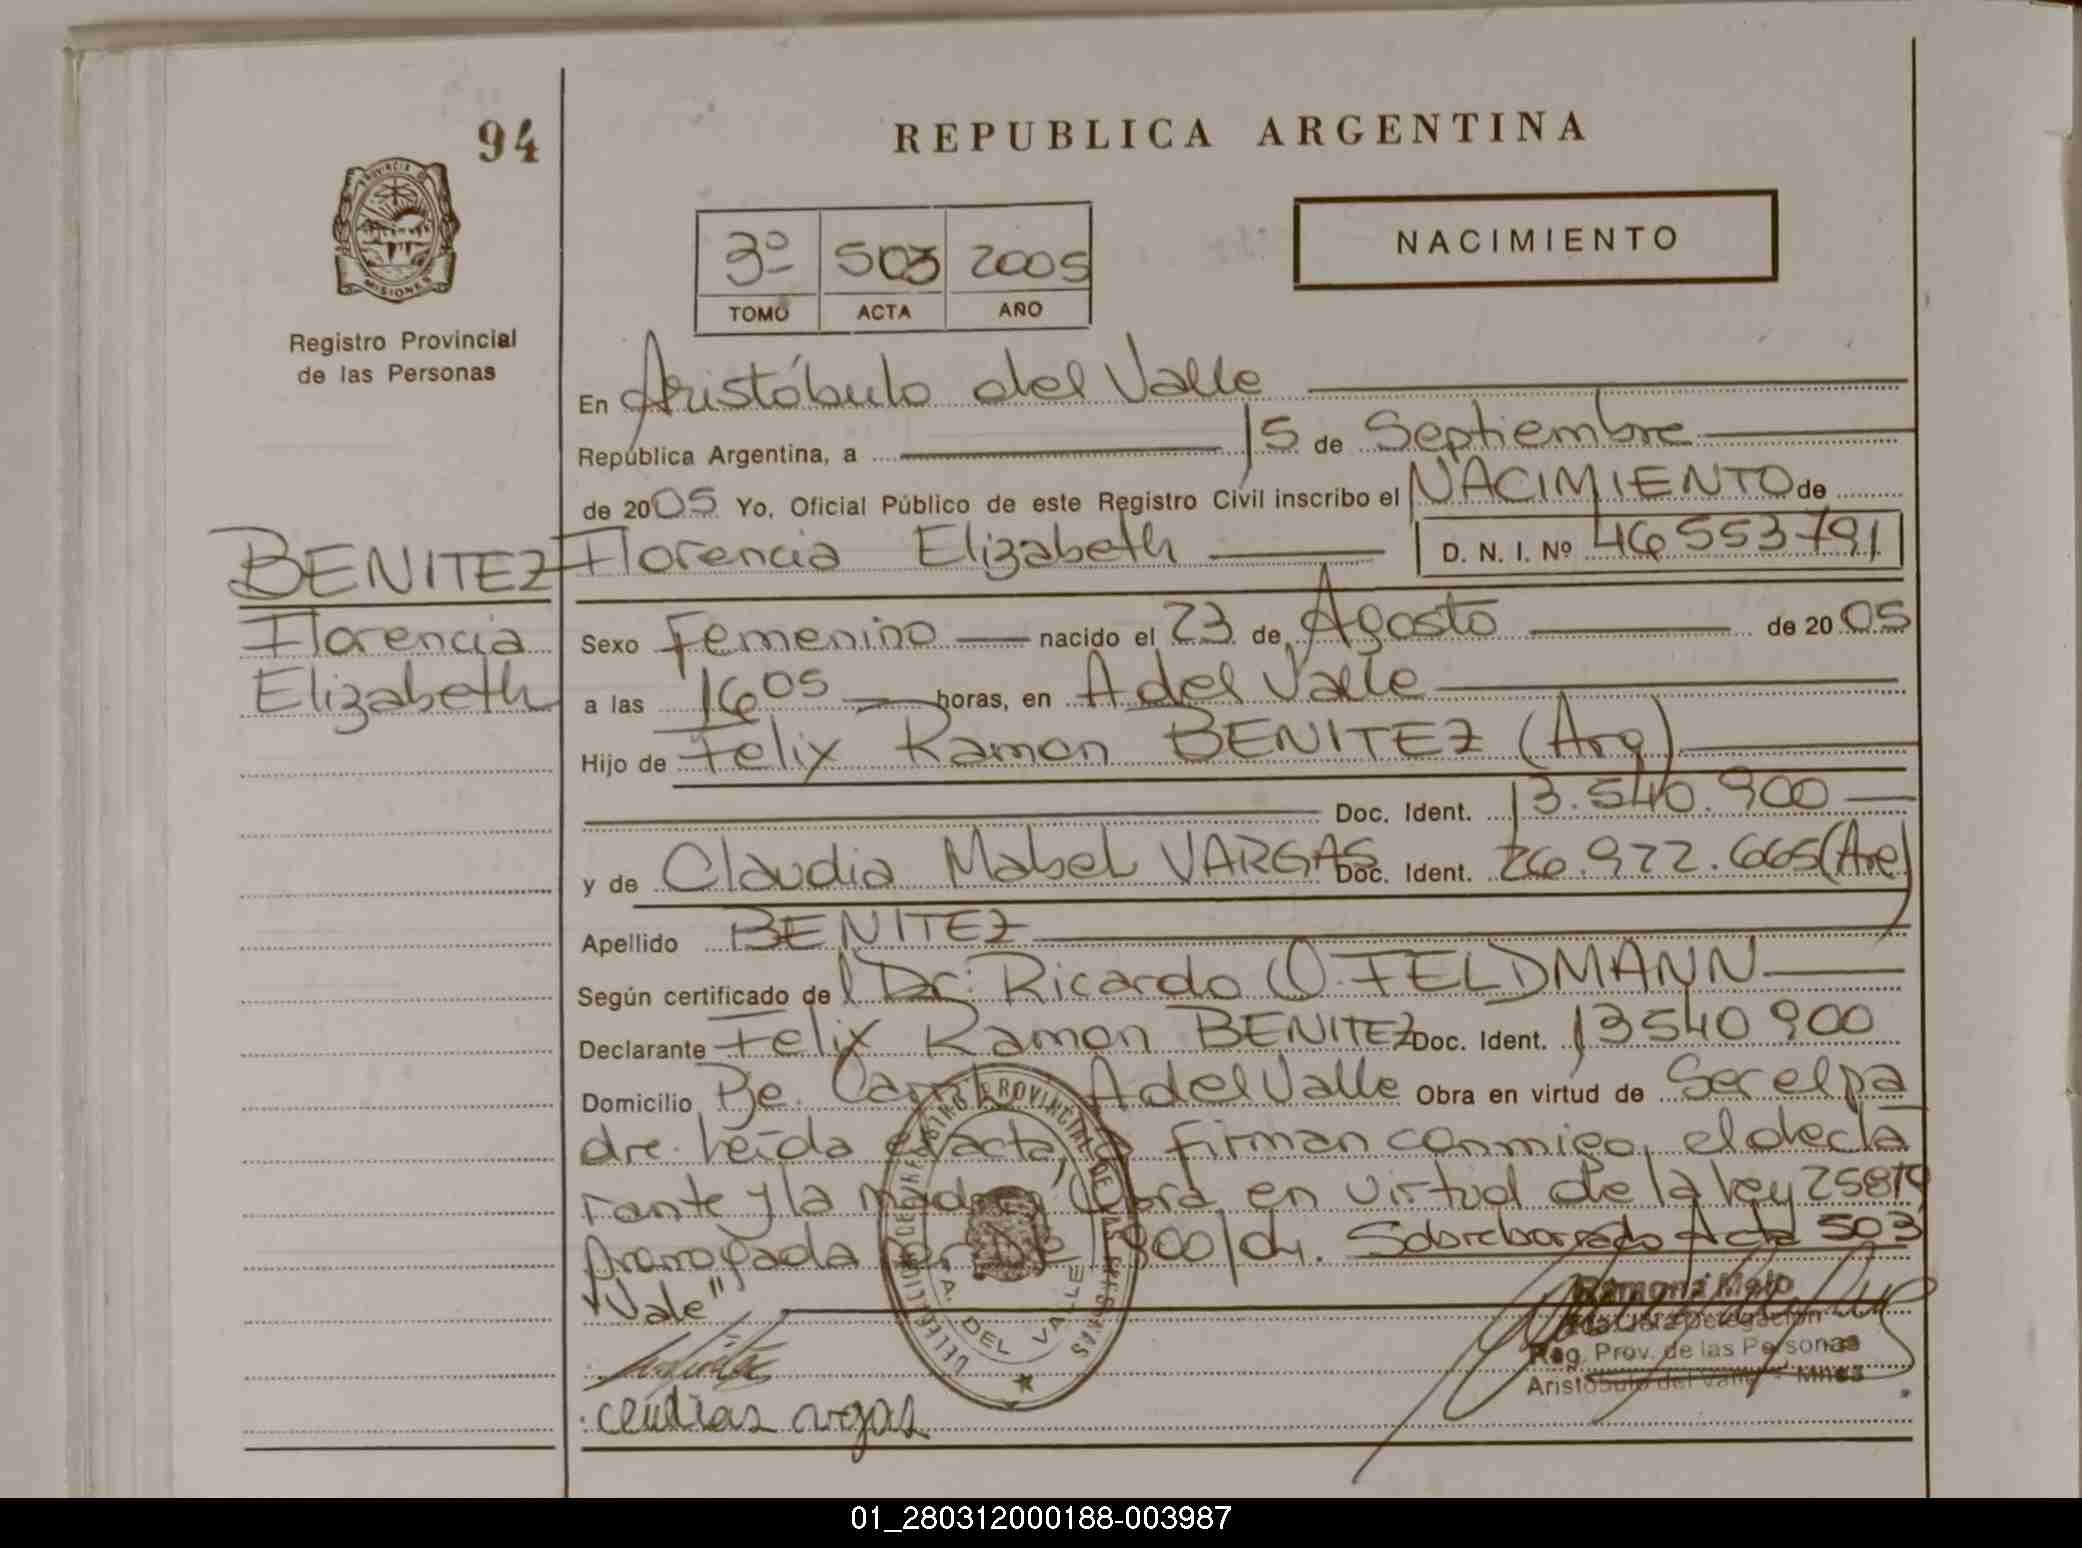 94
REPUBLICA ARGENTINA
PROVINCIA DE
MISIONES
Registro Provincial
de las Personas
3º 503 2005
TOMO ACTA AÑO
NACIMIENTO
En Aristóbulo del Valle
República Argentina, a 15 de Septiembre
de 2005 Yo, Oficial Público de este Registro Civil inscribo el NACIMIENTO de
Florencia Elizabeth D. N. I. Nº 46553791
BENITEZ
Florencia
Elizabeth
Sexo Femenino nacido el 23 de Agosto de 2005
a las 16 05 horas, en A del Valle
Hijo de Felix Ramon BENITEZ (Arg)
Doc. Ident. 13.540.900
y de Claudia Mabel VARGAS Doc. Ident. 26.972.665
Apellido BENITEZ
Según certificado del Dr. Ricardo O. FELDMANN
Declarante Felix Ramon BENITEZ Doc. Ident. 13540900
Domicilio A del Valle Obra en virtud de Ser el pa
dre. Leída el acta, firman conmigo, el decla
rante y la madre, Obra en virtud de la ley 25819
por 1900/04. Sobreborrado Acta 503
"Vale"
Ramona Melo
Reg. Prov. de las Personas
Aristóbulo del Valle - Mnes
A. DEL VALLE
01_280312000188-003987